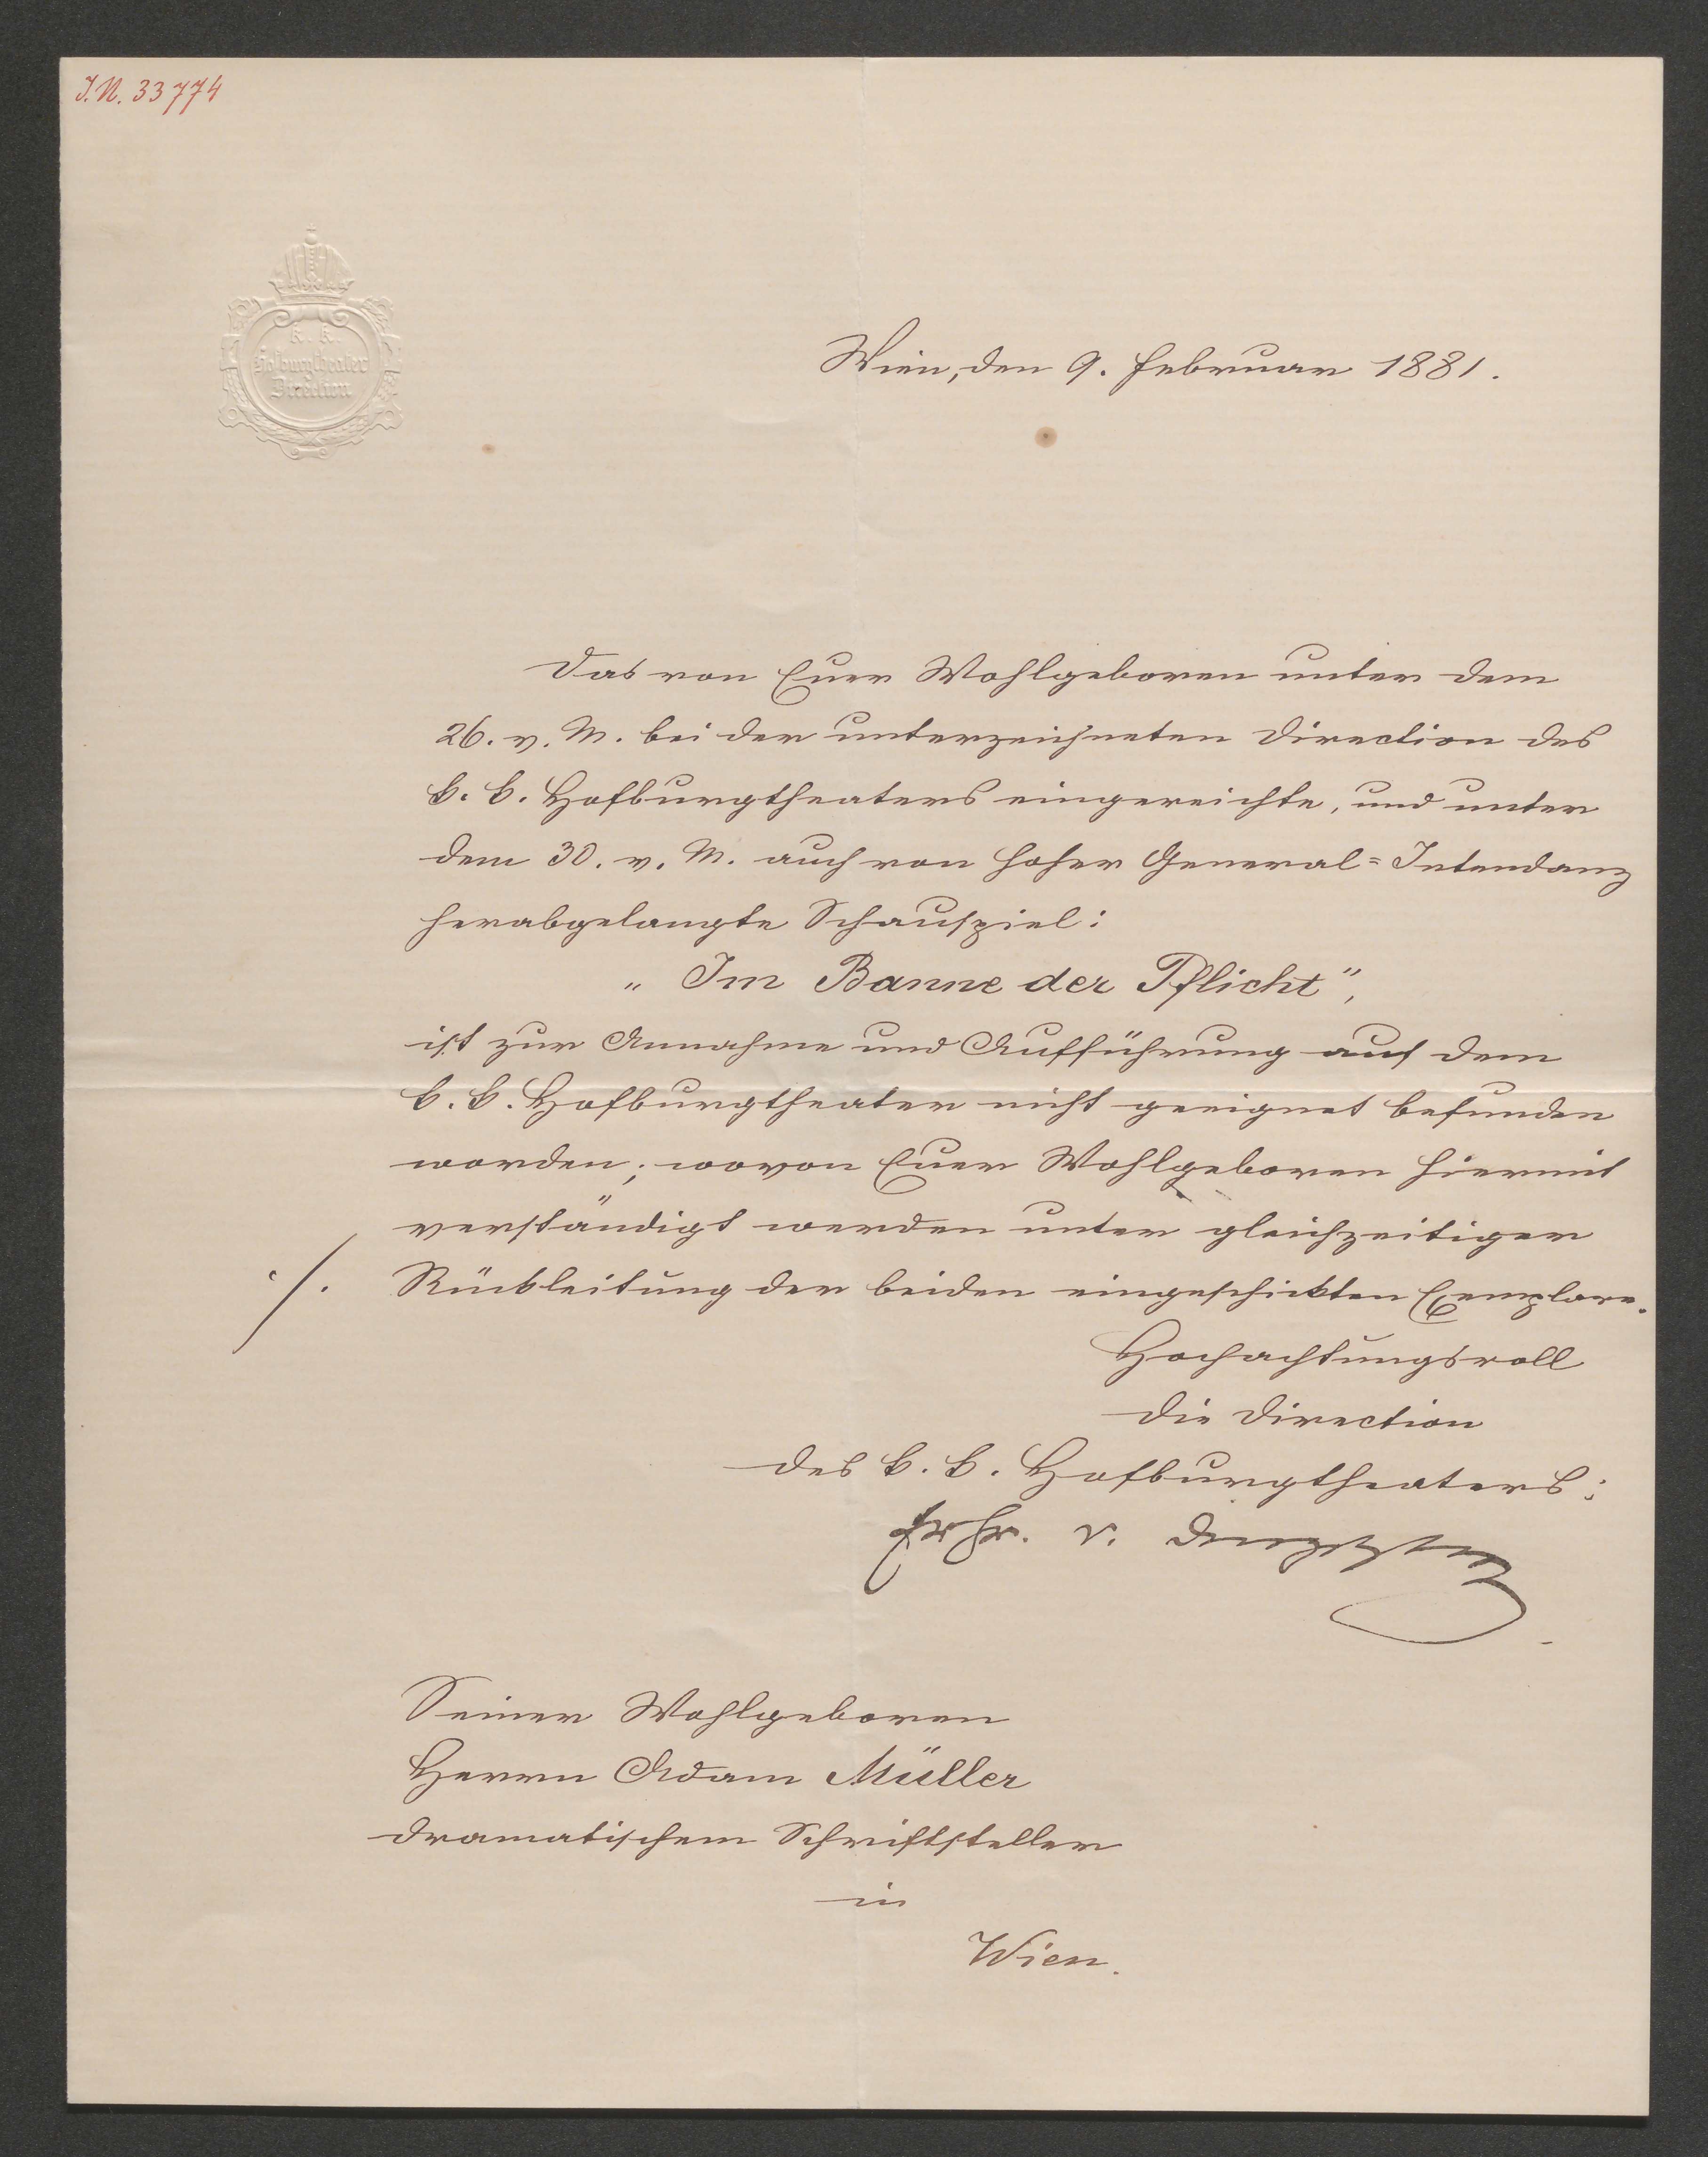 J.N. 33774
K. K.
Hofburgtheater
Direction
Wien, den 9. Februar 1881.
Das von Euer Wohlgeboren unter dem
26. v. M. bei der unterzeichneten Direction des
k. k. Hofburgtheaters eingereichte, und unter
dem 30. v. M. auch von hoher General=Intendanz
herabgelangte Schauspiel:
„Im Banne der Pflicht",
ist zur Annahme und Aufführung auf dem
k. k. Hofburgtheater nicht geeignet befunden
worden; wovon Euer Wohlgeboren hiermit
verständigt werden unter gleichzeitiger
./. Rückleitung der beiden eingeschickten Exemplare.
Hochachtungsvoll
Die Direction
des k. k. Hofburgtheaters:
Frhr. v. Dingelstedt
Seiner Wohlgeboren
Herrn Adam Müller
dramatischem Schriftsteller
in
Wien.